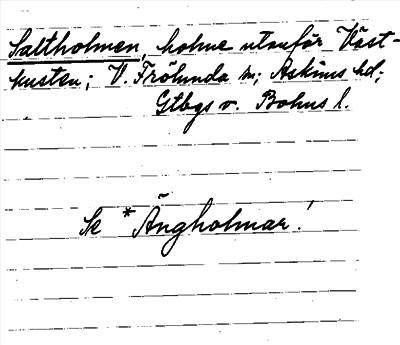 Saltholmen, holme utanför Väst-
kusten; V. Frölunda sn; Askims hd;
Gtbgs o. Bohus l.
Se *Ängholmar!